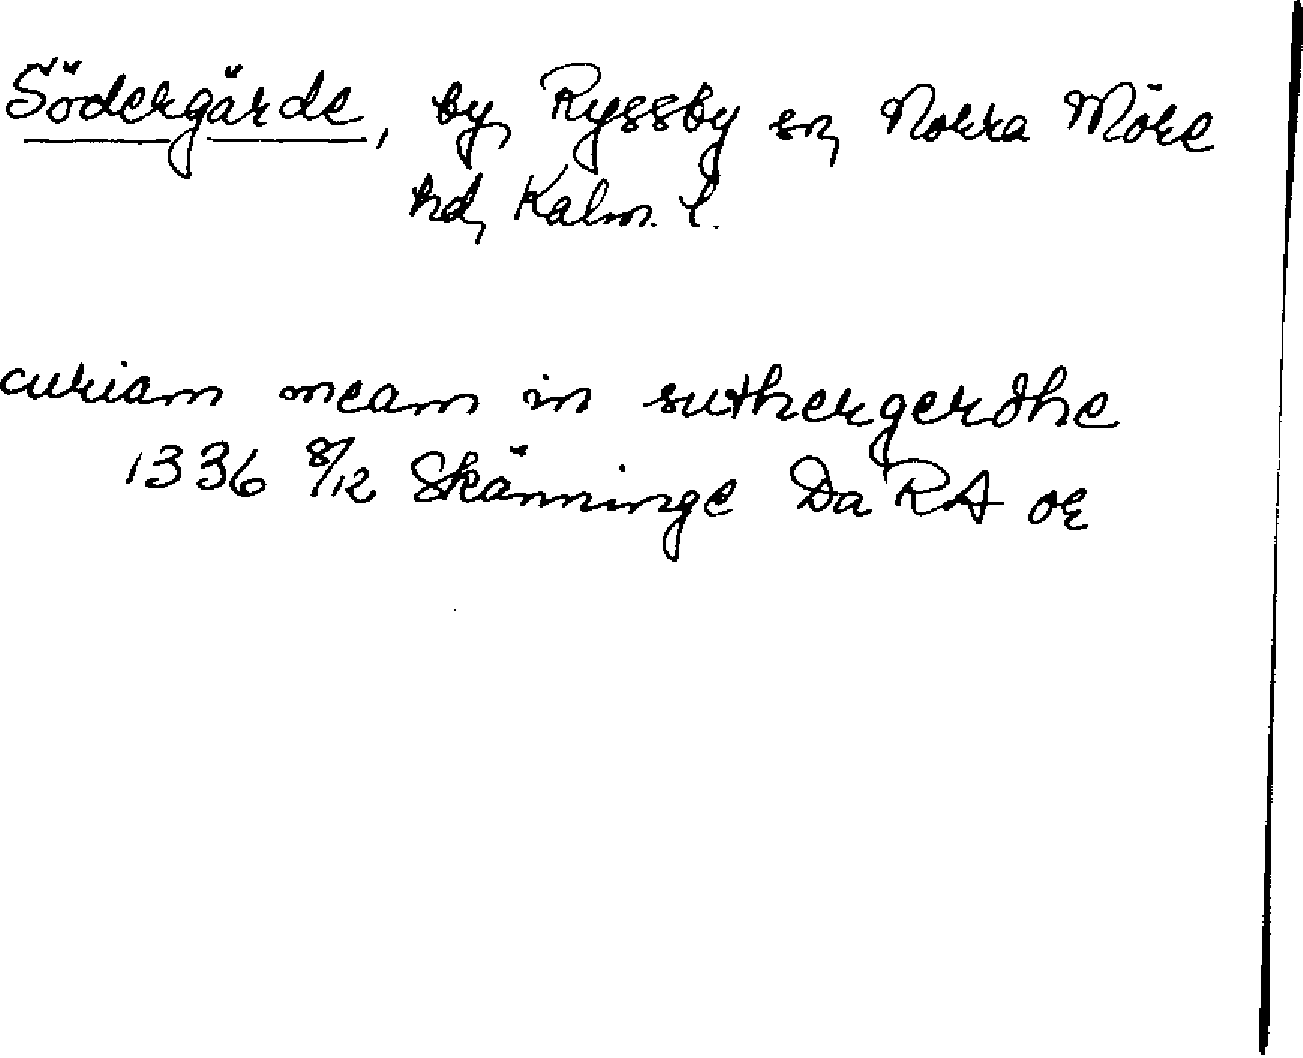 Södergärde, by, Ryssby sn, Norra Möre
hd, Kalm. l.
curiam meam in suthergerdhe
1336 8/12 Skänninge Da RA or